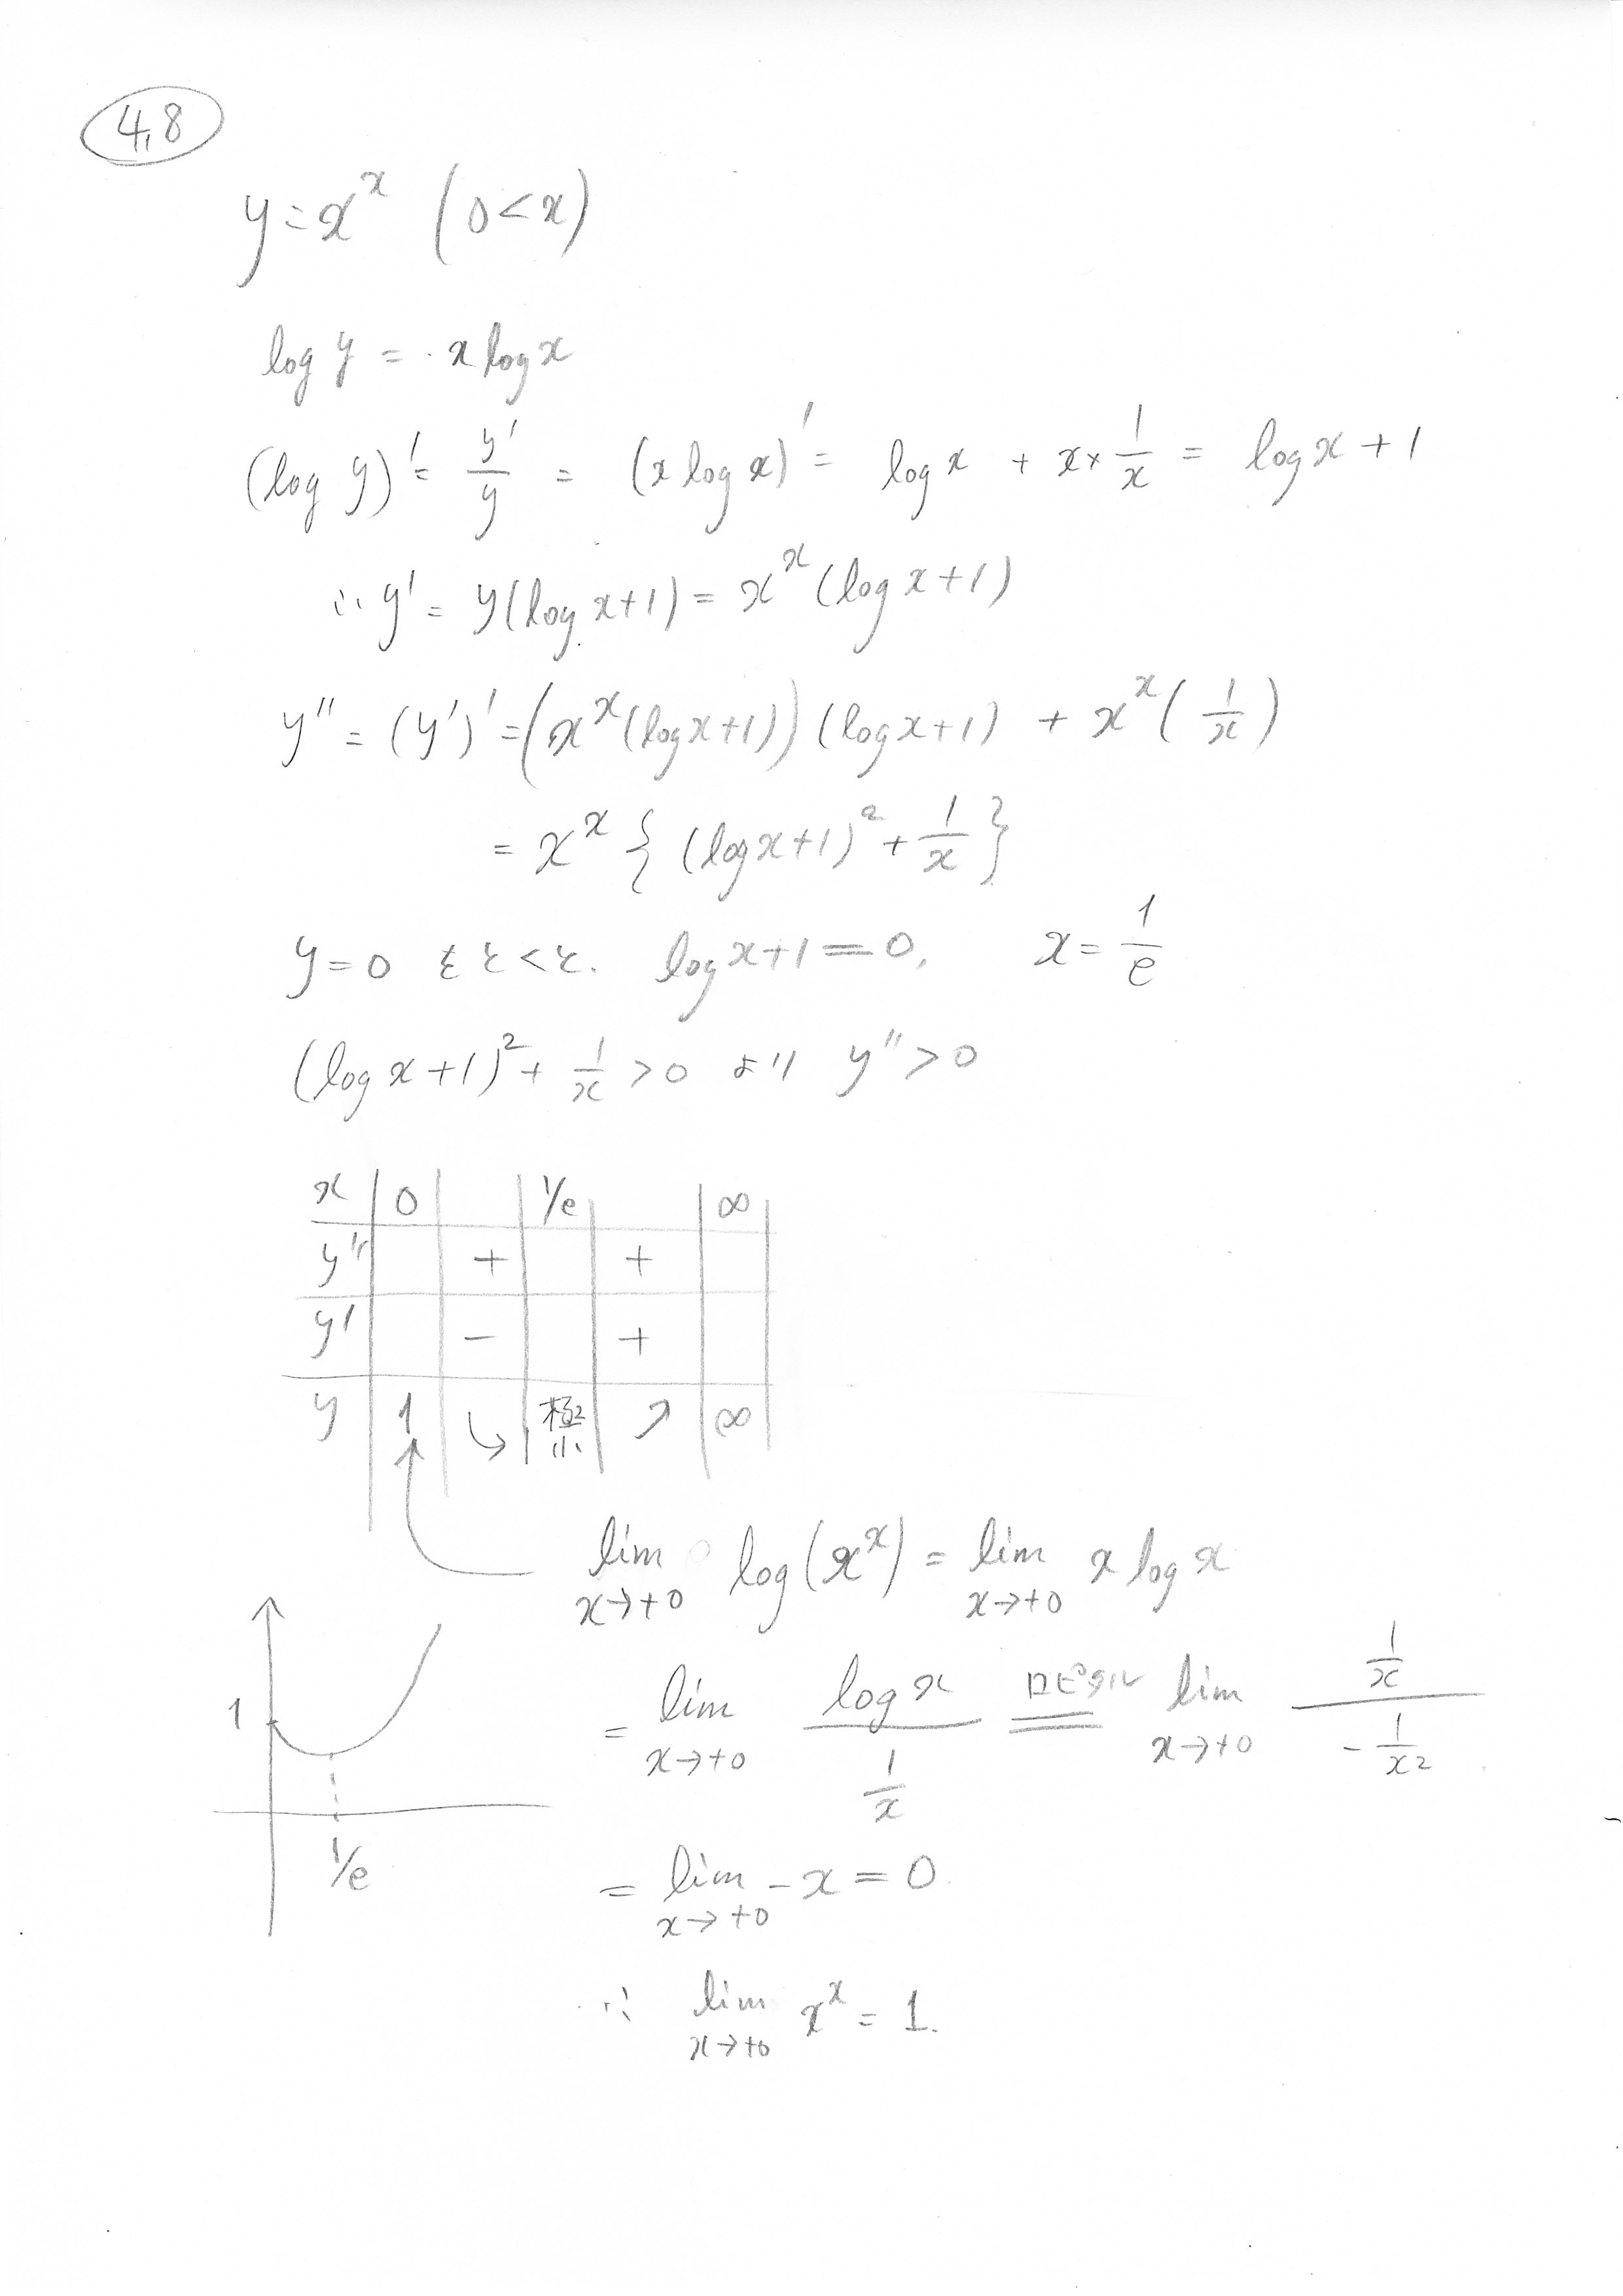 4.8
y = x^x (0<x)
log y = x log x
(log y)' = y'/y = (x log x)' = log x + x × 1/x = log x + 1
∴ y' = y(log x+1) = x^x (log x+1)
y'' = (y')' = (x^x (log x+1)) (log x+1) + x^x (1/x)
= x^x { (log x+1)^2 + 1/x }
y=0 をとくと. log x+1=0, x= 1/e
(log x+1)^2 + 1/x >0 より y''>0
x 0 1/e ∞
y'' + +
y' − +
y 1 ↘ 極小 ↗ ∞
lim x→+0 log(x^x) = lim x→+0 x log x
= lim x→+0 log x / (1/x) ロピタル = lim x→+0 (1/x) / (-1/x^2)
1
1/e
= lim x→+0 -x = 0
∴ lim x→+0 x^x = 1.